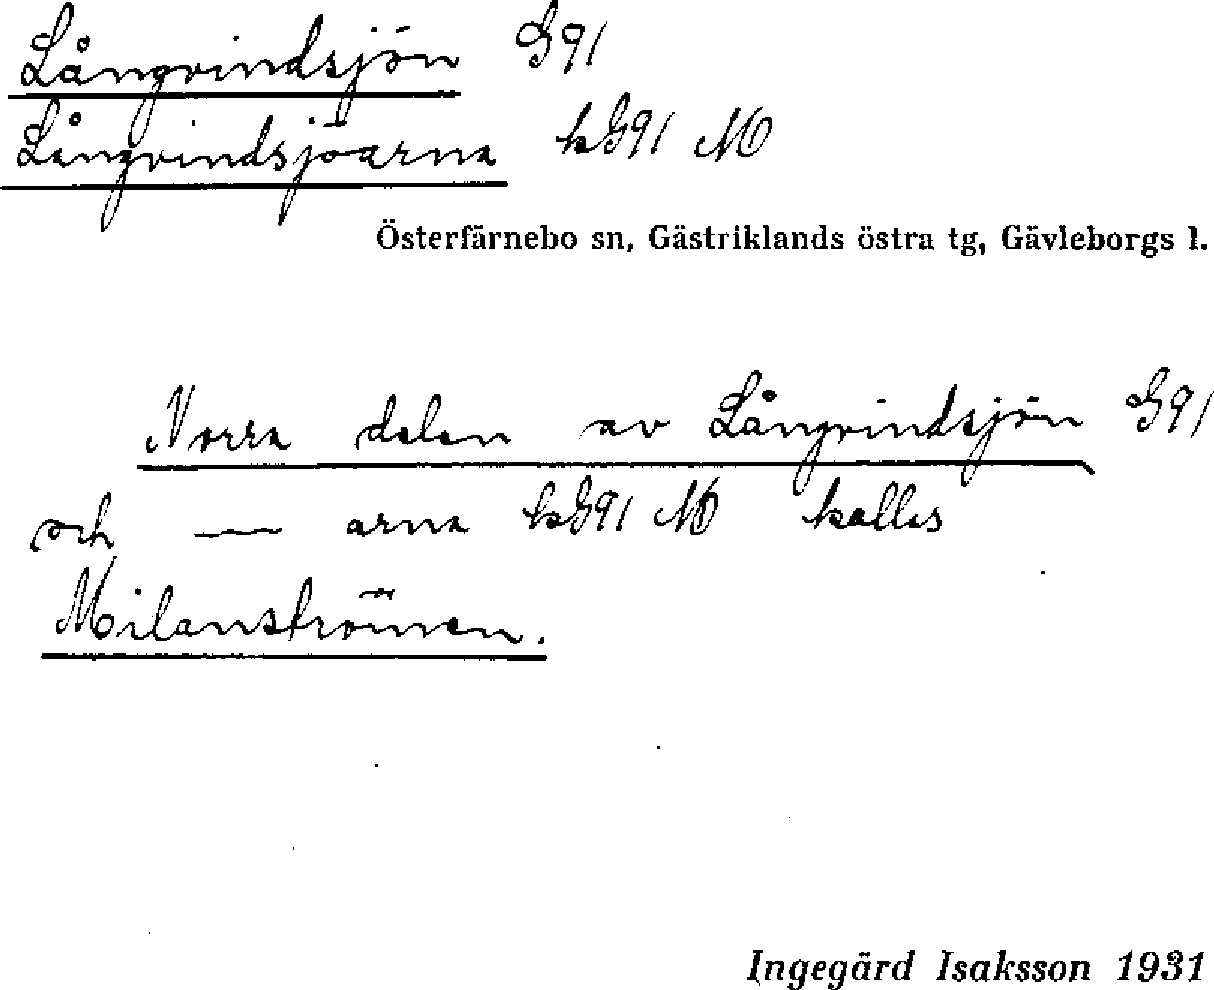 Långvindsjön G91
Långvindsjöarna kG91 MO
Österfärnebo sn, Gästriklands östra tg, Gävleborgs l.
Norra delen av Långvindsjön G91
och — arna kG91 MO kallas
Milanströmmen.
Ingegärd Isaksson 1931